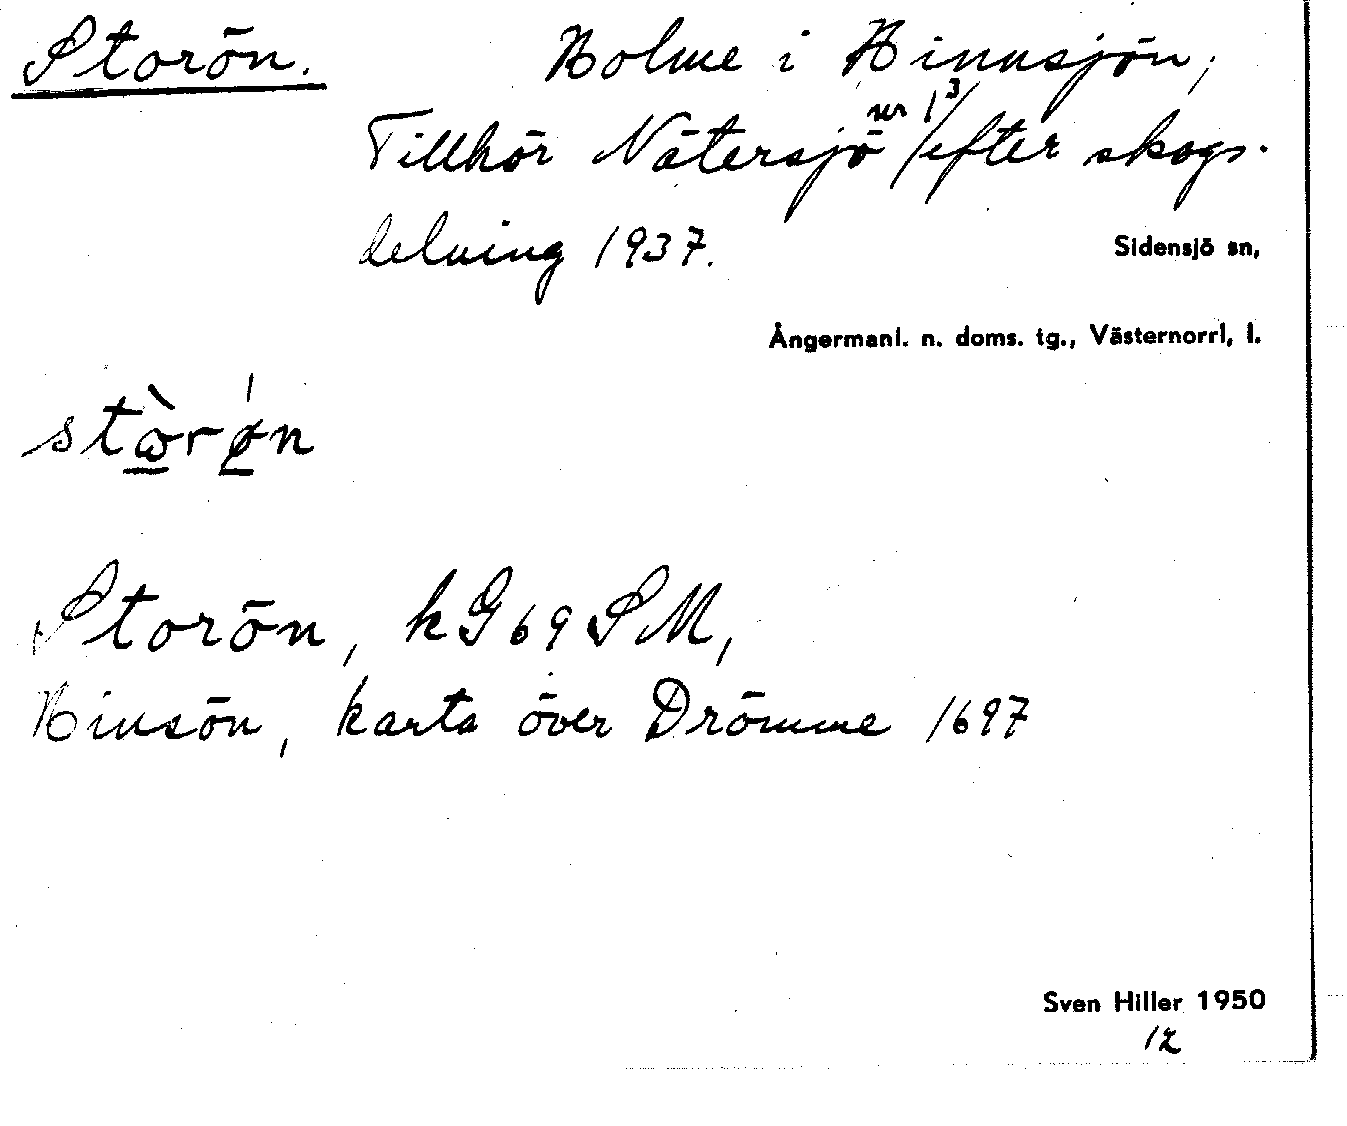 Storön. Holme i Hinnsjön,
Tillhör Nätersjö nr 1³/ efter skogs-
delning 1937.
Sidensjö sn,
Ångermanl. n. doms. tg., Västernorrl, l.
Storön, kG69SM,
Hinsön, karta över Drömme 1697
Sven Hiller 1950
12